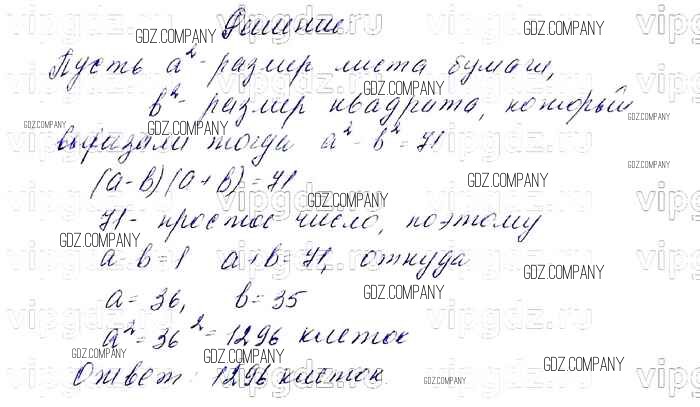 Решение.
Пусть a² - размер листа бумаги,
b² - размер квадрата, который
вырезали тогда a² - b² = 71
(a-b)(a+b) = 71
71 - простое число, поэтому
a-b=1 a+b=71, откуда
a = 36, b = 35
a² = 36² = 1296 клеток
Ответ: 1296 клеток.